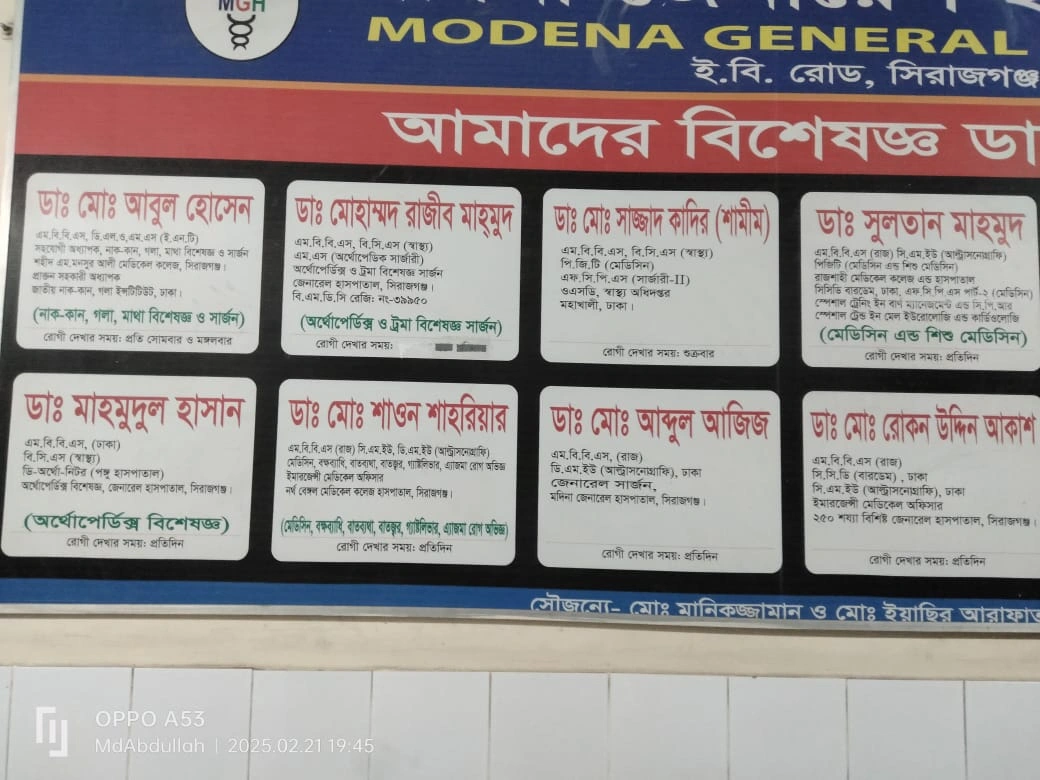 MGH
MODENA GENERAL
ই.বি. রোড, সিরাজগঞ্জ
আমাদের বিশেষজ্ঞ ডা
ডাঃ মোঃ আবুল হোসেন
এম.বি.বি.এস, ডি.এল.ও,এম.এস (ই.এন.টি)
সহযোগী অধ্যাপক, নাক-কান, গলা, মাথা বিশেষজ্ঞ ও সার্জন
শহীদ এম.মনসুর আলী মেডিকেল কলেজ, সিরাজগঞ্জ।
প্রাক্তন সহকারী অধ্যাপক
জাতীয় নাক-কান, গলা ইন্সটিটিউট, ঢাকা।
(নাক-কান, গলা, মাথা বিশেষজ্ঞ ও সার্জন)
রোগী দেখার সময়: প্রতি সোমবার ও মঙ্গলবার
ডাঃ মোহাম্মদ রাজীব মাহ্মুদ
এম.বি.বি.এস, বি.সি.এস (স্বাস্থ্য)
এম.এস (অর্থোপেডিক সার্জারী)
অর্থোপের্ডিক্স ও ট্রমা বিশেষজ্ঞ সার্জন
জেনারেল হাসপাতাল, সিরাজগঞ্জ।
বি.এম.ডি.সি রেজি: নং-৩৯৯৫০
(অর্থোপের্ডিক্স ও ট্রমা বিশেষজ্ঞ সার্জন)
রোগী দেখার সময়:
ডাঃ মোঃ সাজ্জাদ কাদির (শামীম)
এম.বি.বি.এস, বি.সি.এস (স্বাস্থ্য)
পি.জি.টি (মেডিসিন)
এফ.সি.পি.এস (সার্জারী-II)
ওএসডি, স্বাস্থ্য অধিদপ্তর
মহাখালী, ঢাকা।
রোগী দেখার সময়: শুক্রবার
ডাঃ সুলতান মাহমুদ
এম.বি.বি.এস (রাজ) সি.এম.ইউ (আল্ট্রাসনোগ্রাফি)
পিজিটি (মেডিসিন এন্ড শিশু মেডিসিন)
রাজশাহী মেডিকেল কলেজ এন্ড হাসপাতাল
সিসিডি বারডেম, ঢাকা, এফ.সি.পি.এস পার্ট-২ (মেডিসিন)
স্পেশাল ট্রেনিং ইন বার্ণ ম্যানেজমেন্ট এন্ড সি.পি.আর
স্পেশাল ট্রেন্ড ইন মেল ইউরোলোজি এন্ড কার্ডিওলোজি
(মেডিসিন এন্ড শিশু মেডিসিন)
রোগী দেখার সময়: প্রতিদিন
ডাঃ মাহমুদুল হাসান
এম.বি.বি.এস, (ঢাকা)
বি.সি.এস (স্বাস্থ্য)
ডি-অর্থো-নিটর (পঙ্গু হাসপাতাল)
অর্থোপের্ডিক্স বিশেষজ্ঞ, জেনারেল হাসপাতাল, সিরাজগঞ্জ।
(অর্থোপের্ডিক্স বিশেষজ্ঞ)
রোগী দেখার সময়: প্রতিদিন
ডাঃ মোঃ শাওন শাহরিয়ার
এম.বি.বি.এস (রাজ) সি.এম.ইউ, ডি.এম.ইউ (আল্ট্রাসনোগ্রাফি)
মেডিসিন, বক্ষব্যাধি, বাতব্যথা, বাতজ্বর, গ্যাষ্টলিভার, এ্যাজমা রোগ অভিজ্ঞ
ইমারজেন্সী মেডিকেল অফিসার
নর্থ বেঙ্গল মেডিকেল কলেজ হাসপাতাল, সিরাজগঞ্জ।
(মেডিসিন, বক্ষব্যাধি, বাতব্যথা, বাতজ্বর, গ্যাষ্টলিভার, এ্যাজমা রোগ অভিজ্ঞ)
রোগী দেখার সময়: প্রতিদিন
ডাঃ মোঃ আব্দুল আজিজ
এম.বি.বি.এস, (রাজ)
ডি.এম.ইউ (আল্ট্রাসনোগ্রাফি), ঢাকা
জেনারেল সার্জন,
মদিনা জেনারেল হাসপাতাল, সিরাজগঞ্জ।
রোগী দেখার সময়: প্রতিদিন
ডাঃ মোঃ রোকন উদ্দিন আকাশ
এম.বি.বি.এস (রাজ)
সি.সি.ডি (বারডেম) , ঢাকা
সি.এম.ইউ (আল্ট্রাসনোগ্রাফি), ঢাকা
ইমারজেন্সী মেডিকেল অফিসার
২৫০ শয্যা বিশিষ্ট জেনারেল হাসপাতাল, সিরাজগঞ্জ।
রোগী দেখার সময়: প্রতিদিন
সৌজন্যে- মোঃ মানিকজ্জামান ও মোঃ ইয়াছির আরাফাত
OPPO A53
MdAbdullah | 2025.02.21 19:45